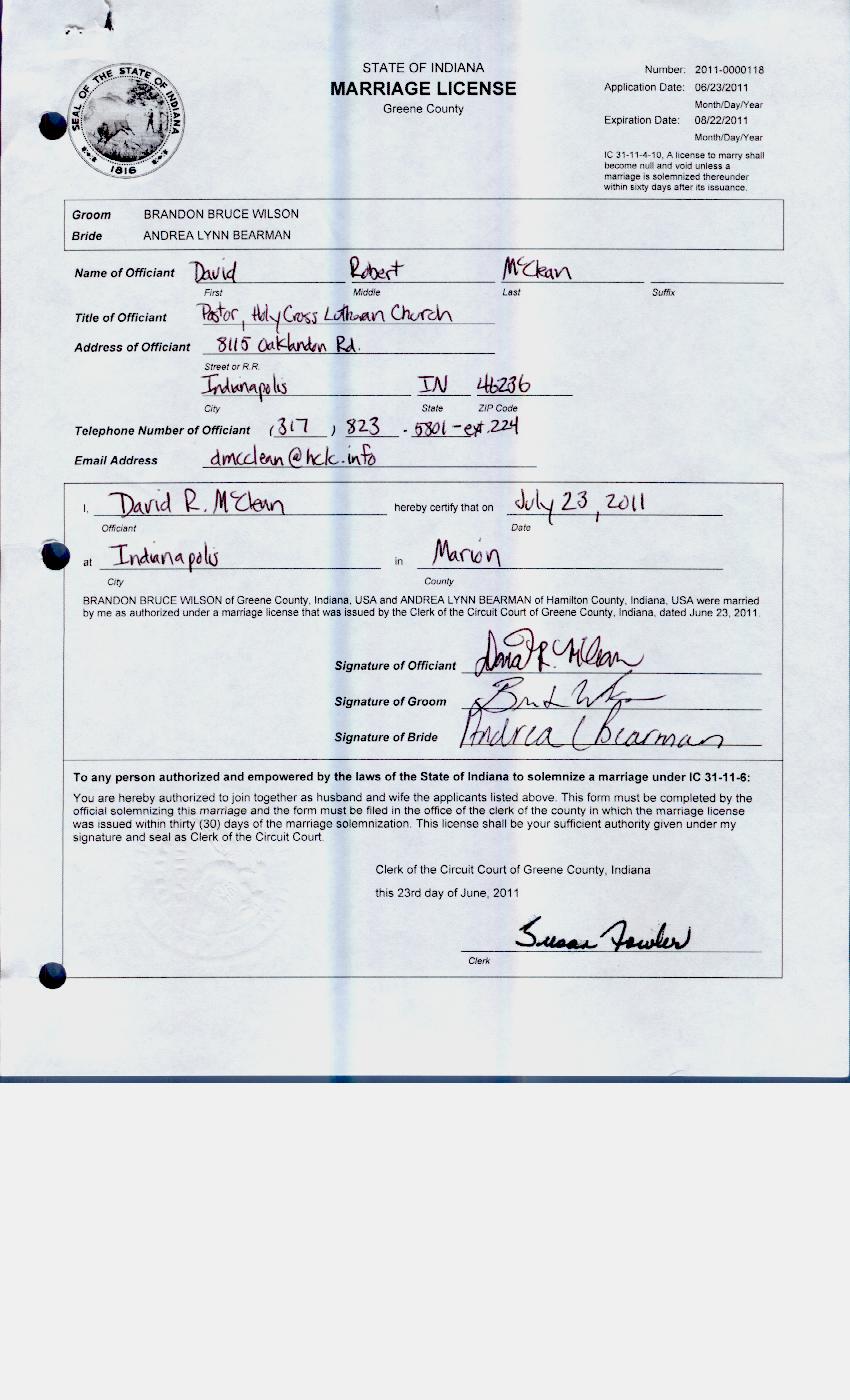 SEAL OF THE STATE OF INDIANA
1816
STATE OF INDIANA
MARRIAGE LICENSE
Greene County
Number: 2011-0000118
Application Date: 06/23/2011
Month/Day/Year
Expiration Date: 08/22/2011
Month/Day/Year
IC 31-11-4-10, A license to marry shall
become null and void unless a
marriage is solemnized thereunder
within sixty days after its issuance.
Groom BRANDON BRUCE WILSON
Bride ANDREA LYNN BEARMAN
Name of Officiant David Robert McClean
First Middle Last Suffix
Title of Officiant Pastor, Holy Cross Lutheran Church
Address of Officiant 8115 Oaklandon Rd.
Street or R.R.
Indianapolis IN 46236
City State ZIP Code
Telephone Number of Officiant (317) 823 - 5801 - ext. 224
Email Address dmcclean@hclc.info
I, David R. McClean hereby certify that on July 23, 2011
Officiant Date
at Indianapolis in Marion
City County
BRANDON BRUCE WILSON of Greene County, Indiana, USA and ANDREA LYNN BEARMAN of Hamilton County, Indiana, USA were married
by me as authorized under a marriage license that was issued by the Clerk of the Circuit Court of Greene County, Indiana, dated June 23, 2011.
Signature of Officiant David R. McClean
Signature of Groom
Signature of Bride Andrea L Bearman
To any person authorized and empowered by the laws of the State of Indiana to solemnize a marriage under IC 31-11-6:
You are hereby authorized to join together as husband and wife the applicants listed above. This form must be completed by the
official solemnizing this marriage and the form must be filed in the office of the clerk of the county in which the marriage license
was issued within thirty (30) days of the marriage solemnization. This license shall be your sufficient authority given under my
signature and seal as Clerk of the Circuit Court.
Clerk of the Circuit Court of Greene County, Indiana
this 23rd day of June, 2011
Susan Fowler
Clerk